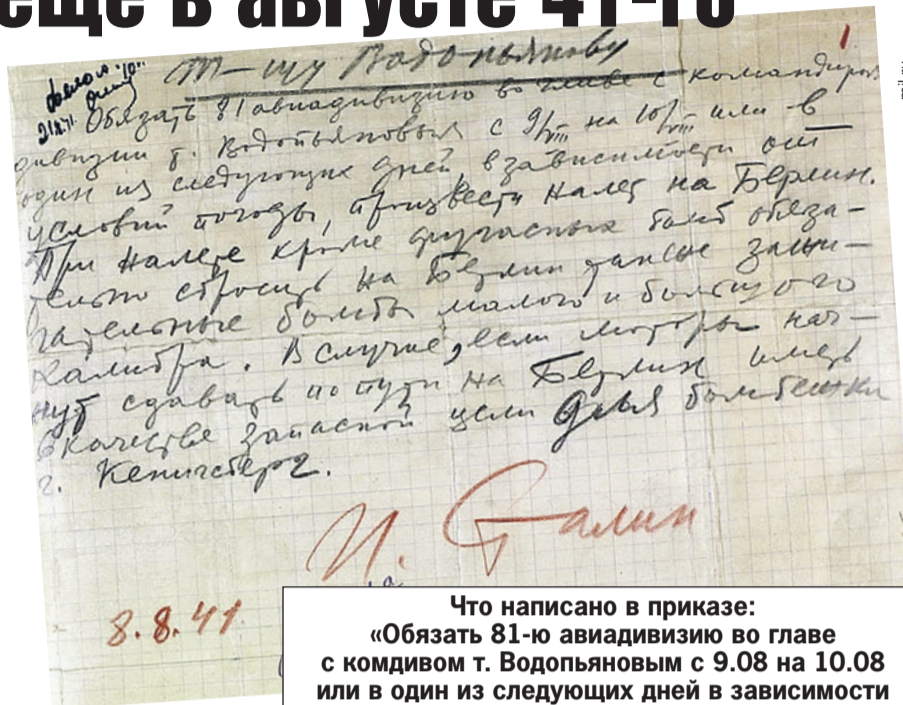 еще в августе 41-го
Т-щу Водопьянову
1
Обязать 81 авиадивизию во главе с командиром
дивизии т. Водопьяновым с 9/VIII на 10/VIII или в
один из следующих дней, в зависимости от
условий погоды, произвести налет на Берлин.
При налете кроме фугасных бомб обяза-
тельно сбросить на Берлин также зажи-
гательные бомбы малого и большого
калибра. В случае, если моторы нач-
нут сдавать по пути на Берлин иметь
в качестве запасной цели для бомбежки
г. Кенигсберг.
И. Сталин
8.8.41
Что написано в приказе:
«Обязать 81-ю авиадивизию во главе
с комдивом т. Водопьяновым с 9.08 на 10.08
или в один из следующих дней в зависимости